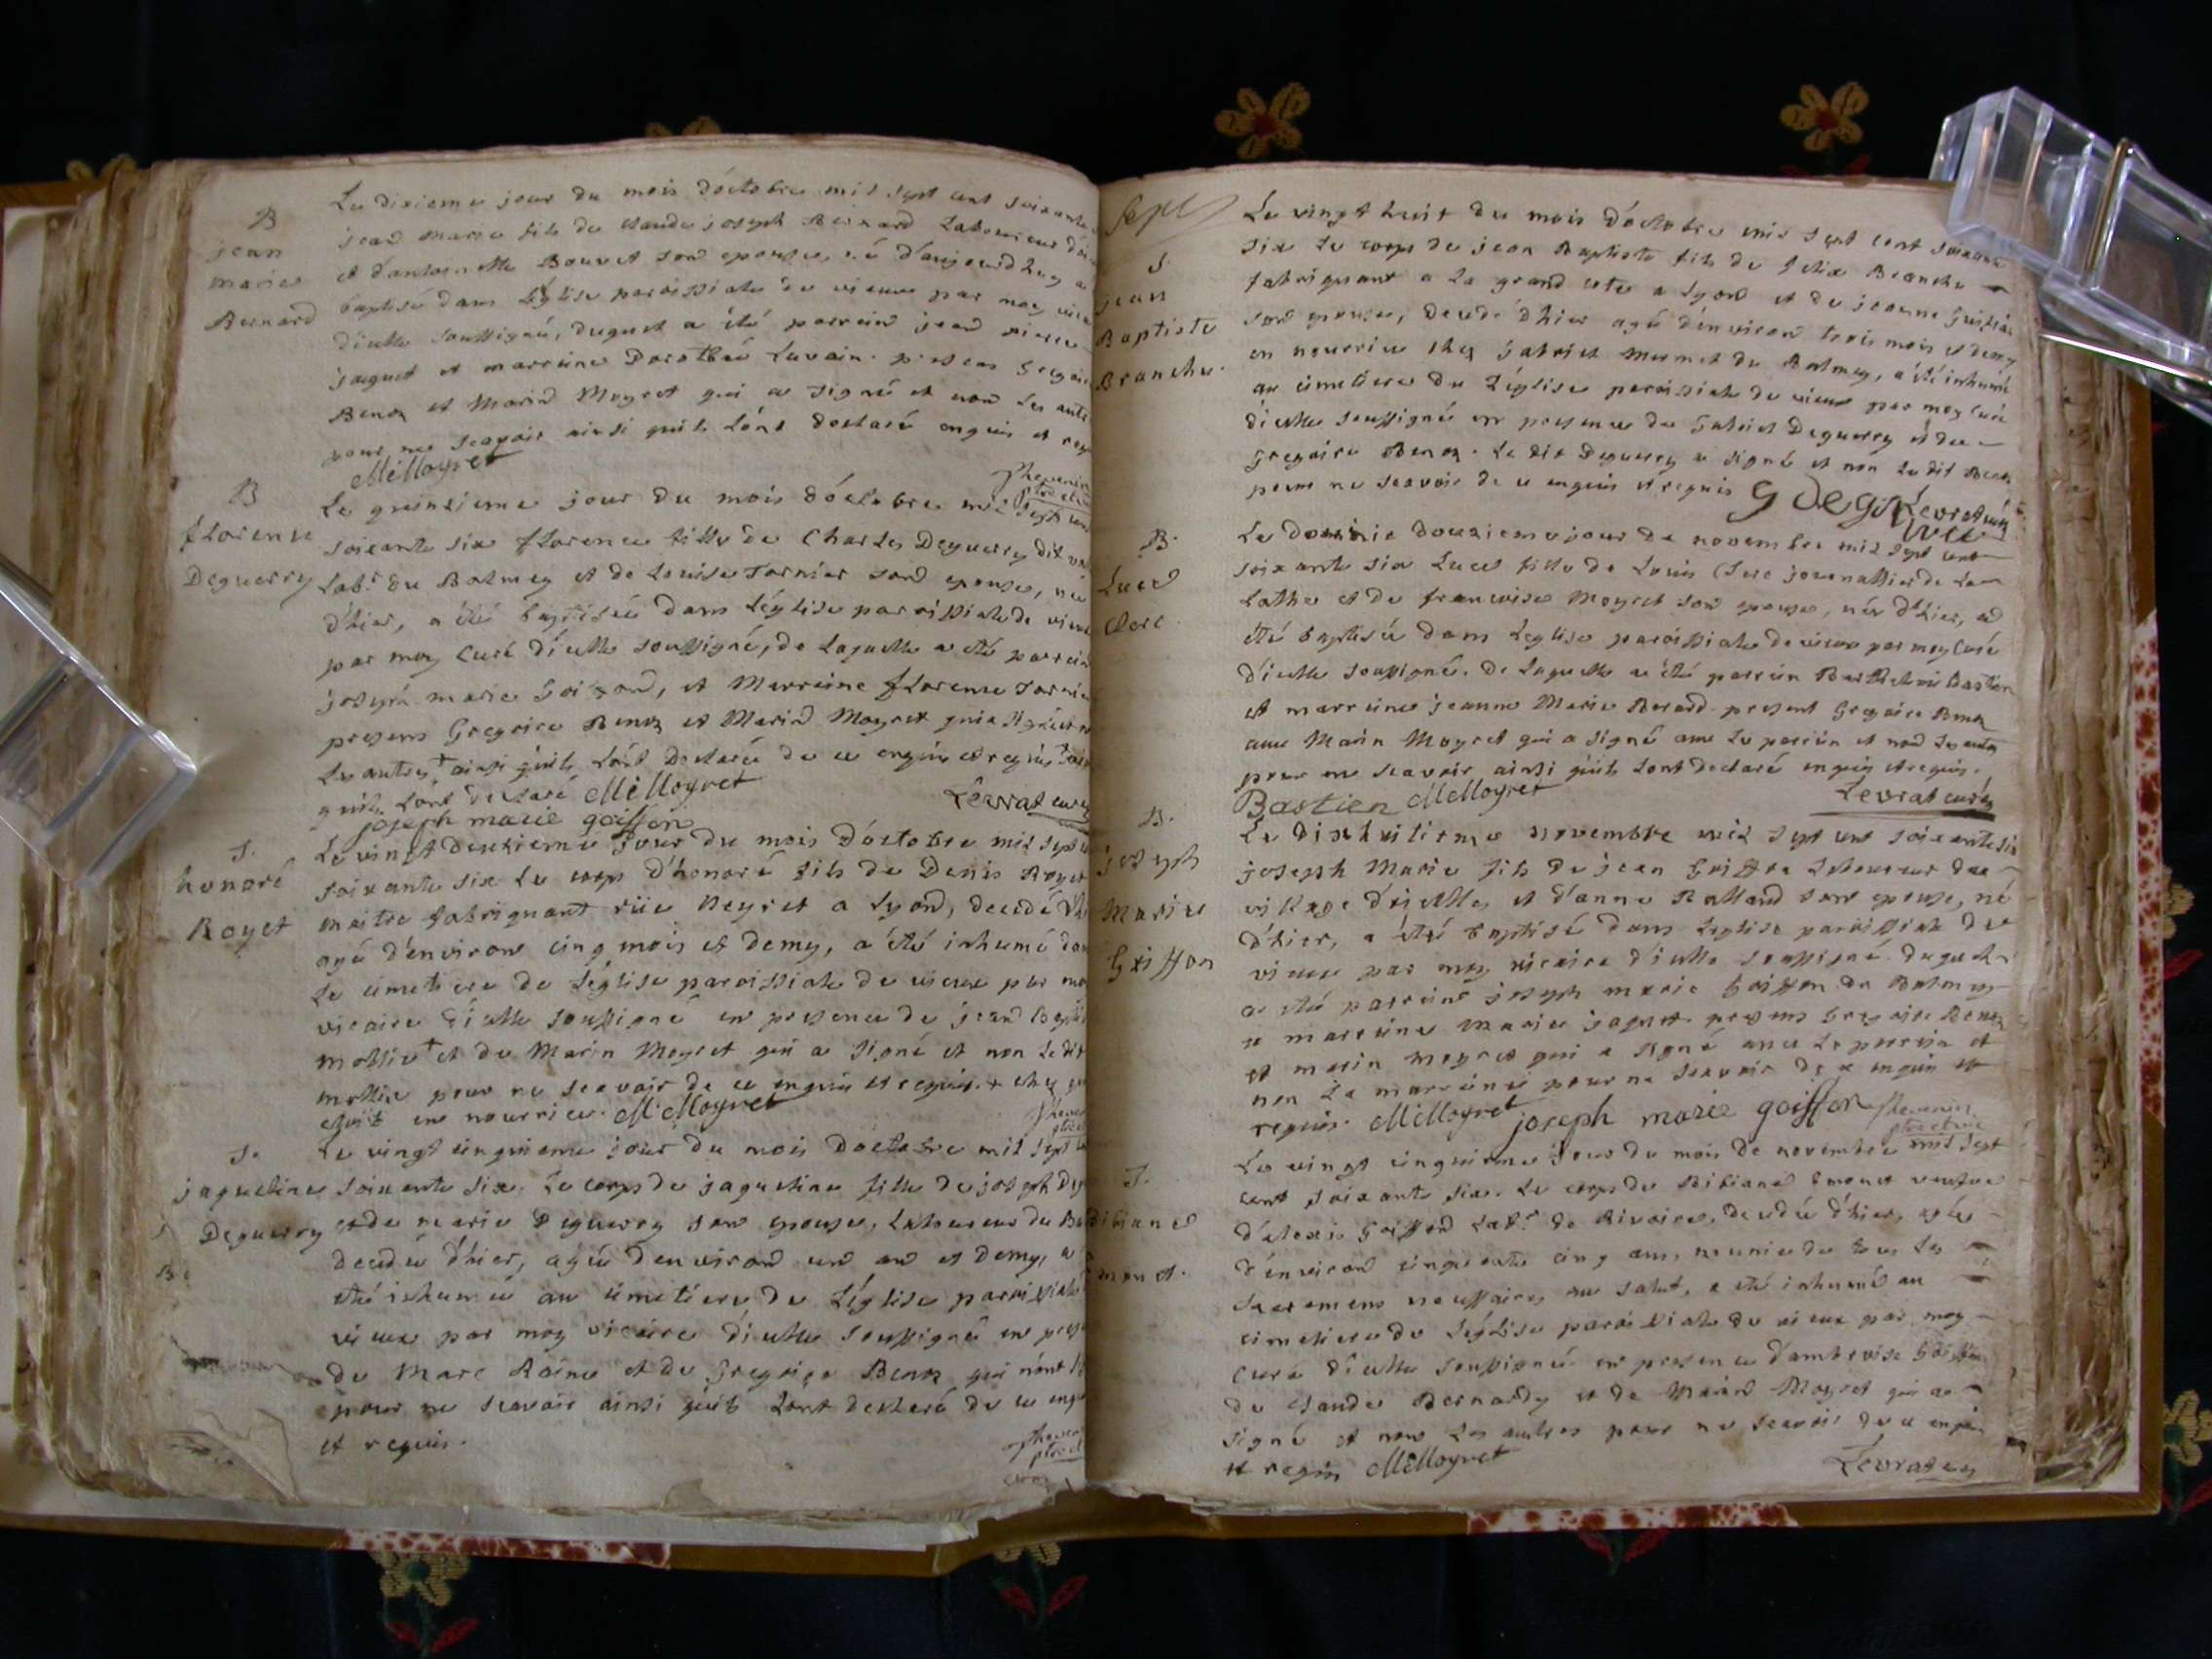 B
jean
marie
Bernard
Le dixieme jour du mois d'octobre mil sept cent soixante
jean Marie fils de claude joseph Bernard Laboureur
et d'antoinette Bouvet son epouse, né d'aujourdhuy a
baptisé dans l'église paroissiale de vieux par moy
d'icelle soussigné, duquel a été parrein jean
jaquet et marreine Dorothée Luvain. presens Gregoire
Benoz et Marin Moyret qui a signé et non les autres
pour ne sçavoir ainsi qu'ils l'ont declaré enquis et
MMoyret
B
florence
Deguerry
Le quinzieme jour du mois d'octobre mil sept cent
soixante six florence fille de Charles Deguerry dit
Labr. du Balmey et de Louise Tornier son epouse, née
d'hier, a été baptisée dans l'église paroissiale de vieux
par moy Curé d'icelle soussigné, de laquelle a été parrein
joseph marie goiffon, et Marreine florence Tornier
presens Gregoire Benoz et Marin Moyret qui a signé
Les autres + ainsi qu'ils l'ont declaré de ce enquis et requis
qu'ils l'ont declaré MMoyret Levrat curé
joseph marie goiffon
S.
honoré
Royet
Le vingt deuxieme jour du mois d'octobre mil sept
soixante six Le corps d'honoré fils de Denis Royet
maitre fabriquant rüe Neyret a Lyon, decedé
agé d'environ cinq mois et demy, a été inhumé dans
Le cimetiere de l'église paroissiale de vieux par moy
vicaire d'icelle soussigné en presence de jean
mollie + et de Marin Moyret qui a signé et non le dit
mollie pour ne sçavoir de ce enquis et requis + chez qui
etoit en nourrice. MMoyret
S.
jaqueline
Deguerry
Le vingt cinquieme jour du mois d'octobre mil sept
soixante six. Le corps de jaqueline fille de joseph
et de marie Deguerry son epouse, Laboureur du
decedée d'hier, agée d'environ un an et demy, a
été inhumée au cimetiere de l'église paroissiale
vieux par moy vicaire d'icelle soussigné en
de Marc Roine et de Gregoire Benoz qui n'ont
pour ne sçavoir ainsi qu'ils l'ont declaré de ce
et requis.
sept
S.
jean
Baptiste
Branche.
Le vingt huit du mois d'octobre mil sept cent soixante
six Le corps de jean Baptiste fils de felix Branche
fabriquant a la grand cote a Lyon et de jeanne
son epouse, decedé d'hier agé d'environ trois mois et demy
en nourrice chez gabriel mermet du Balmey, a été inhumé
au cimetiere de l'église paroissiale de vieux par moy curé
d'icelle soussigné en presence de gabriel Deguerry et de
gregoire Benoz. Le dit Deguerry a signé et non le dit Benoz
pour ne sçavoir de ce enquis et requis g Levrat curé
B.
Lucel
Clerc
Le douzieme jour de novembre mil sept cent
soixante six Lucel fille de Louis Clerc journallier de la
et de francoise Moyret son epouse, née d'hier, a
été baptisée dans l'eglise paroissiale de vieux par moy Curé
d'icelle soussigné. de laquelle a été parrein Barthelemi Bastien
et marreine jeanne Marie Berard. present Gregoire Benoz
avec Marin Moyret qui a signé avec le parrein et non les autres
pour ne sçavoir ainsi qu'ils l'ont declaré enquis et requis.
Bastien MMoyret Levrat curé
B.
joseph
Marie
Goiffon
Le dixhuitieme novembre mil sept cent soixante six
joseph Marie fils de jean Goiffon Laboureur du
village d'icelle, et d'anne Balland son epouse, né
d'hier, a été baptisé dans l'eglise paroissiale de
vieux par moy vicaire d'icelle soussigné. duquel
a été parrein joseph marie Goiffon du Balmey
et marreine marie jaquet. presens Gregoire Benoz
et marin moyret qui a signé avec le parrein et
non la marreine pour ne sçavoir de ce enquis et
requis. MMoyret joseph marie goiffon
S.
Bibiane
Emonet.
Le vingt cinquieme jour du mois de novembre mil sept
cent soixante six. Le corps de Bibiane Emonet veufve
d'alexis Goiffon Labr. de Rivoire, decedée d'hier, agée
d'environ cinquante cinq ans, munie de tous les
sacremens necessaires au salut, a été inhumée au
cimetiere de l'église paroissiale de vieux par moy
Curé d'icelle soussigné en presence d'ambroise Goiffon
de claude Bernardy et de Marin Moyret qui a
signé et non les autres pour ne sçavoir de ce enquis
et requis MMoyret Levrat curé